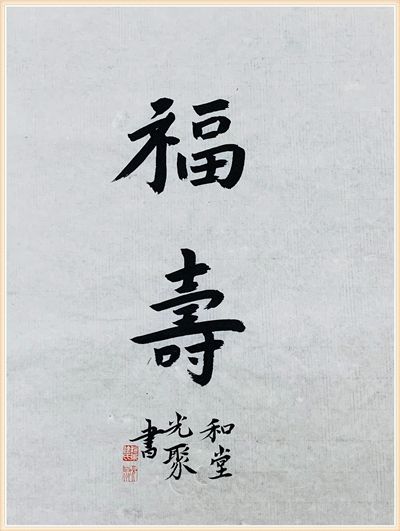 福
壽
和堂
光聚
書